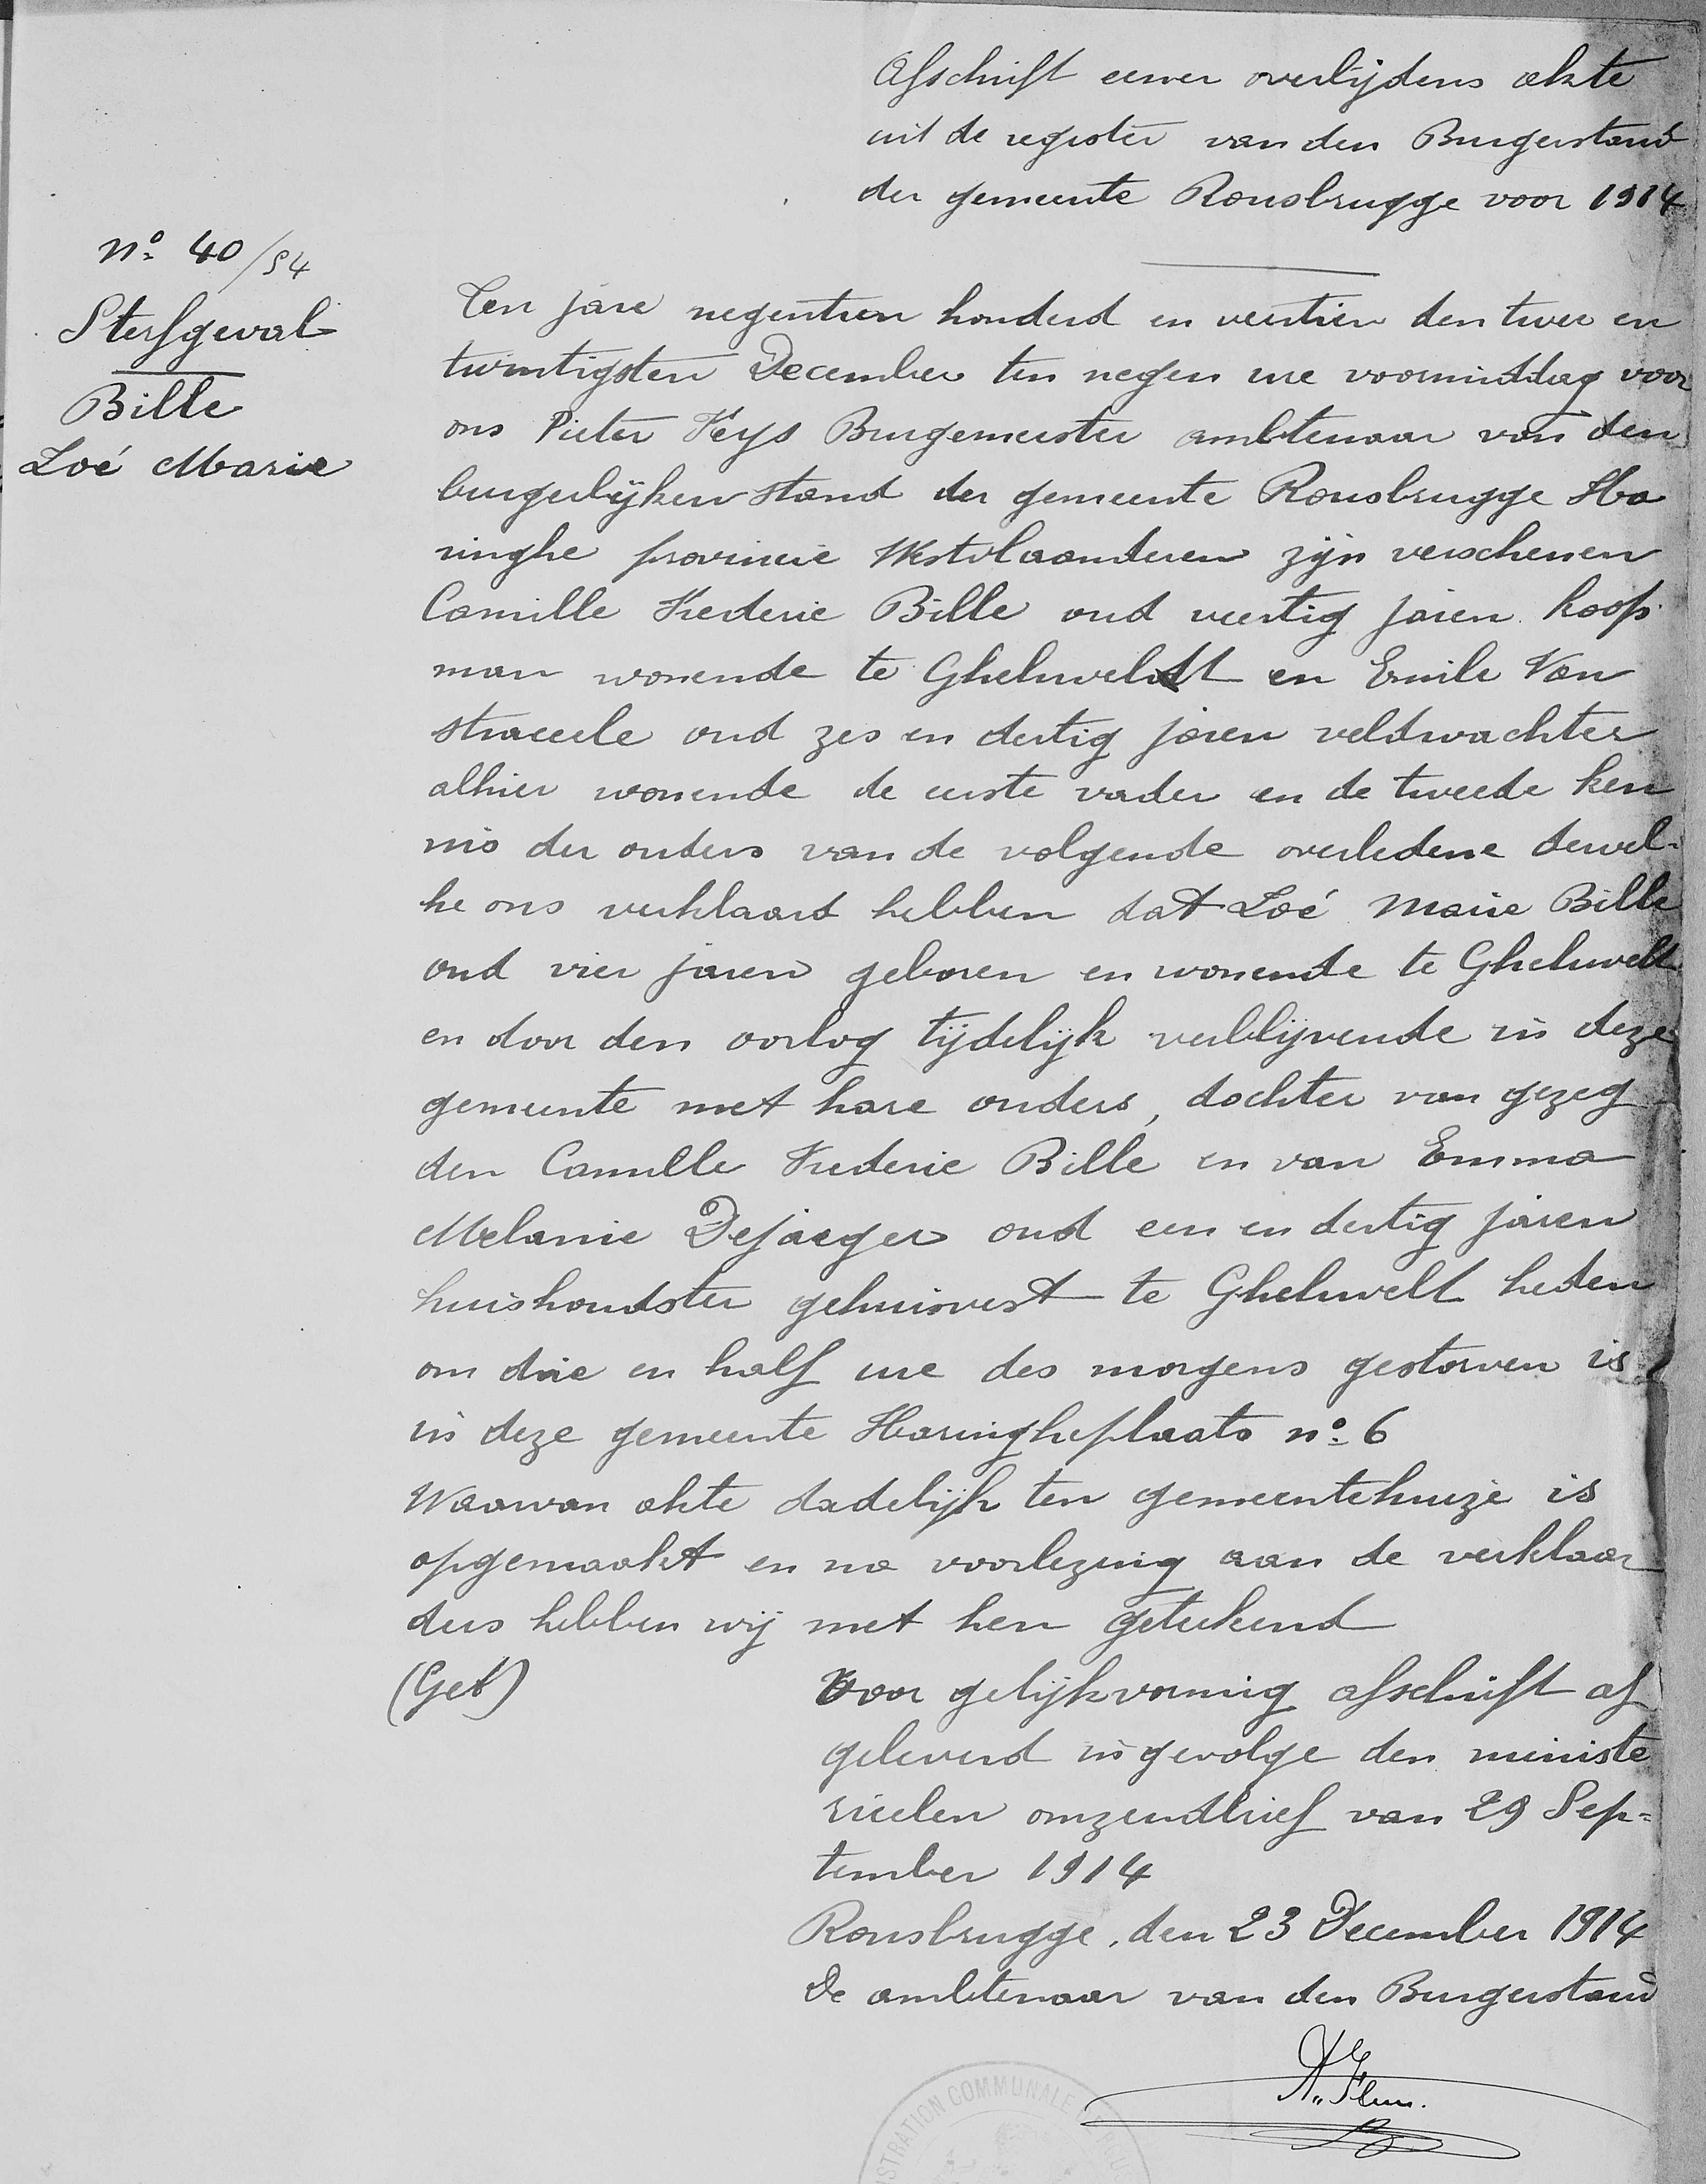 Afschrift eener overlijdens akte
uit de register van den Burgerstand
der gemeente Rousbrugge voor 1914
nº 40/54
Sterfgeval
Bille
Loé Marie
Ten jare negentien honderd en veertien den twee en
twintigsten December ten negen ure voormiddag voor
ons Pieter Feys Burgemeester ambtenaar van den
burgerlijken stand der gemeente Rousbrugge Ha
ringhe provincie Westvlaanderen zijn verschenen
Camille Frederic Bille oud veertig jaren koop
man wonende te Gheluveldt en Emile Van
straceele oud zes en dertig jaren veldwachter
alhier wonende de eerste vader en de tweede ken
nis der ouders van de volgende overledene dewel-
ke ons verklaard hebben dat Loé Marie Bille
oud vier jaren geboren en wonende te Gheluvelt
en door den oorlog tijdelijk verblijvende in deze
gemeente met hare ouders, dochter van gezeg
den Camille Frederic Bille en van Emma
Melanie Dejaeger oud een en dertig jaren
huishoudster gehuisvest te Gheluvelt heden
om drie en half ure des morgens gestorven is
in deze gemeente Haringheplaats nº 6
Waarvan akte dadelijk ten gemeentehuize is
opgemaakt en na voorlezing aan de verklaar
ders hebben wij met hen geteekend
(Get)
Voor gelijkvormig afschrift af
geleverd in gevolge den ministe
rieelen omzendbrief van 29 Sep=
tember 1914
Rousbrugge, den 23 December 1914
De ambtenaar van den Burgerstand
STRATION COMMUNALE